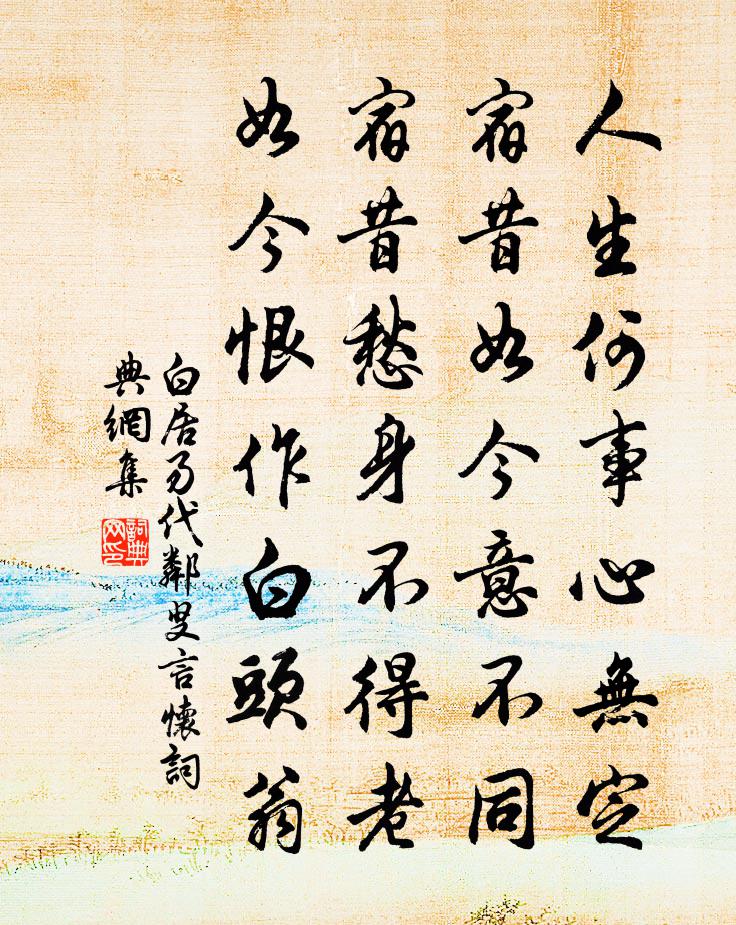 人生何事心無定
宿昔如今意不同
宿昔愁身不得老
如今恨作白頭翁
白居易代鄰叟言懷詞
典網集
詞典
网印